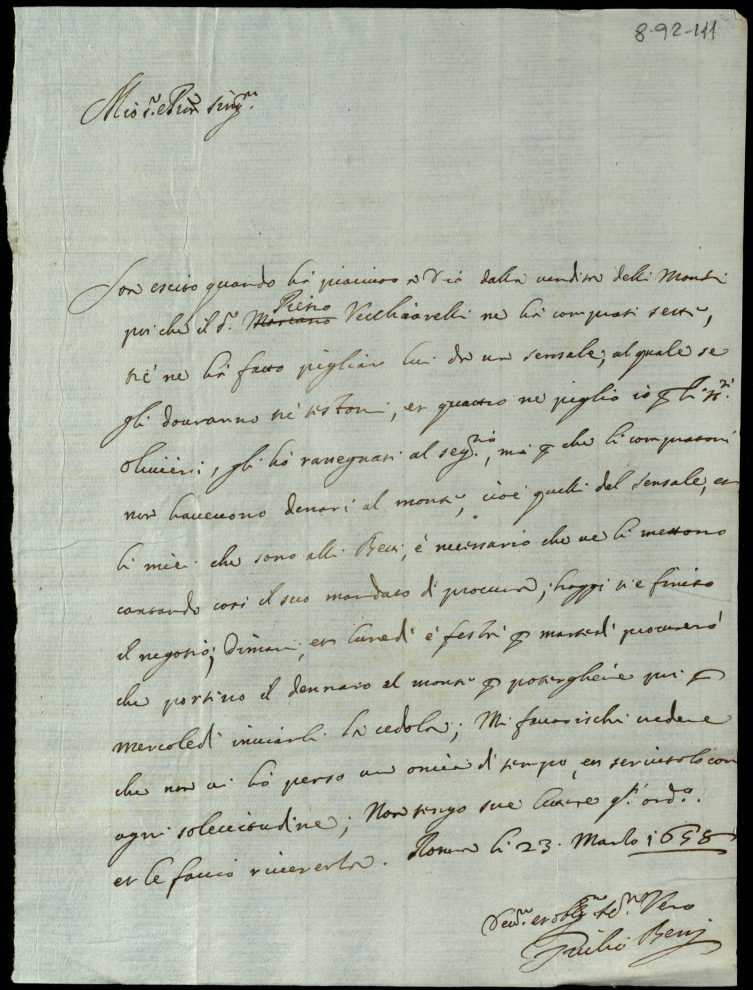 8-92-141
Mio S.re e Pron sing.mo
Son escito quando hà piaciuto à Dio dalla vendita delli Monti
poi che il S.r Pietro Vecchiarelli ne hà comprati sette,
trè ne hà fatto pigliar lui da un sensale, al quale se
gli douranno trè testoni, et quattro ne piglio io p li SS.ri
Oliuieri, gli hò rassegnati al seg.rio, mà p che li compratori
non haueuono denari al monte, cioè quelli del sensale, et
li miei che sono alli Beni, è necessario che ue li mettono
cantando così il suo mandato di procura; hoggi si è finito
il negotio; Dimani, et lunedì è festa p martedì procurerò
che portino il dennaro al monte p poterghene poi p
mercoledì inuiarli la cedola; Mi fauorischi uedere
che non ui hò perso un oncia di tempo, et seruitolo con
ogni solecitudine; Non tengo sue lettere q.to ord.o.
et le faccio riuerenza. Roma li 23. Marzo 1658
Deu.mo et obg.mo Se.re Vero
Giulio Benij